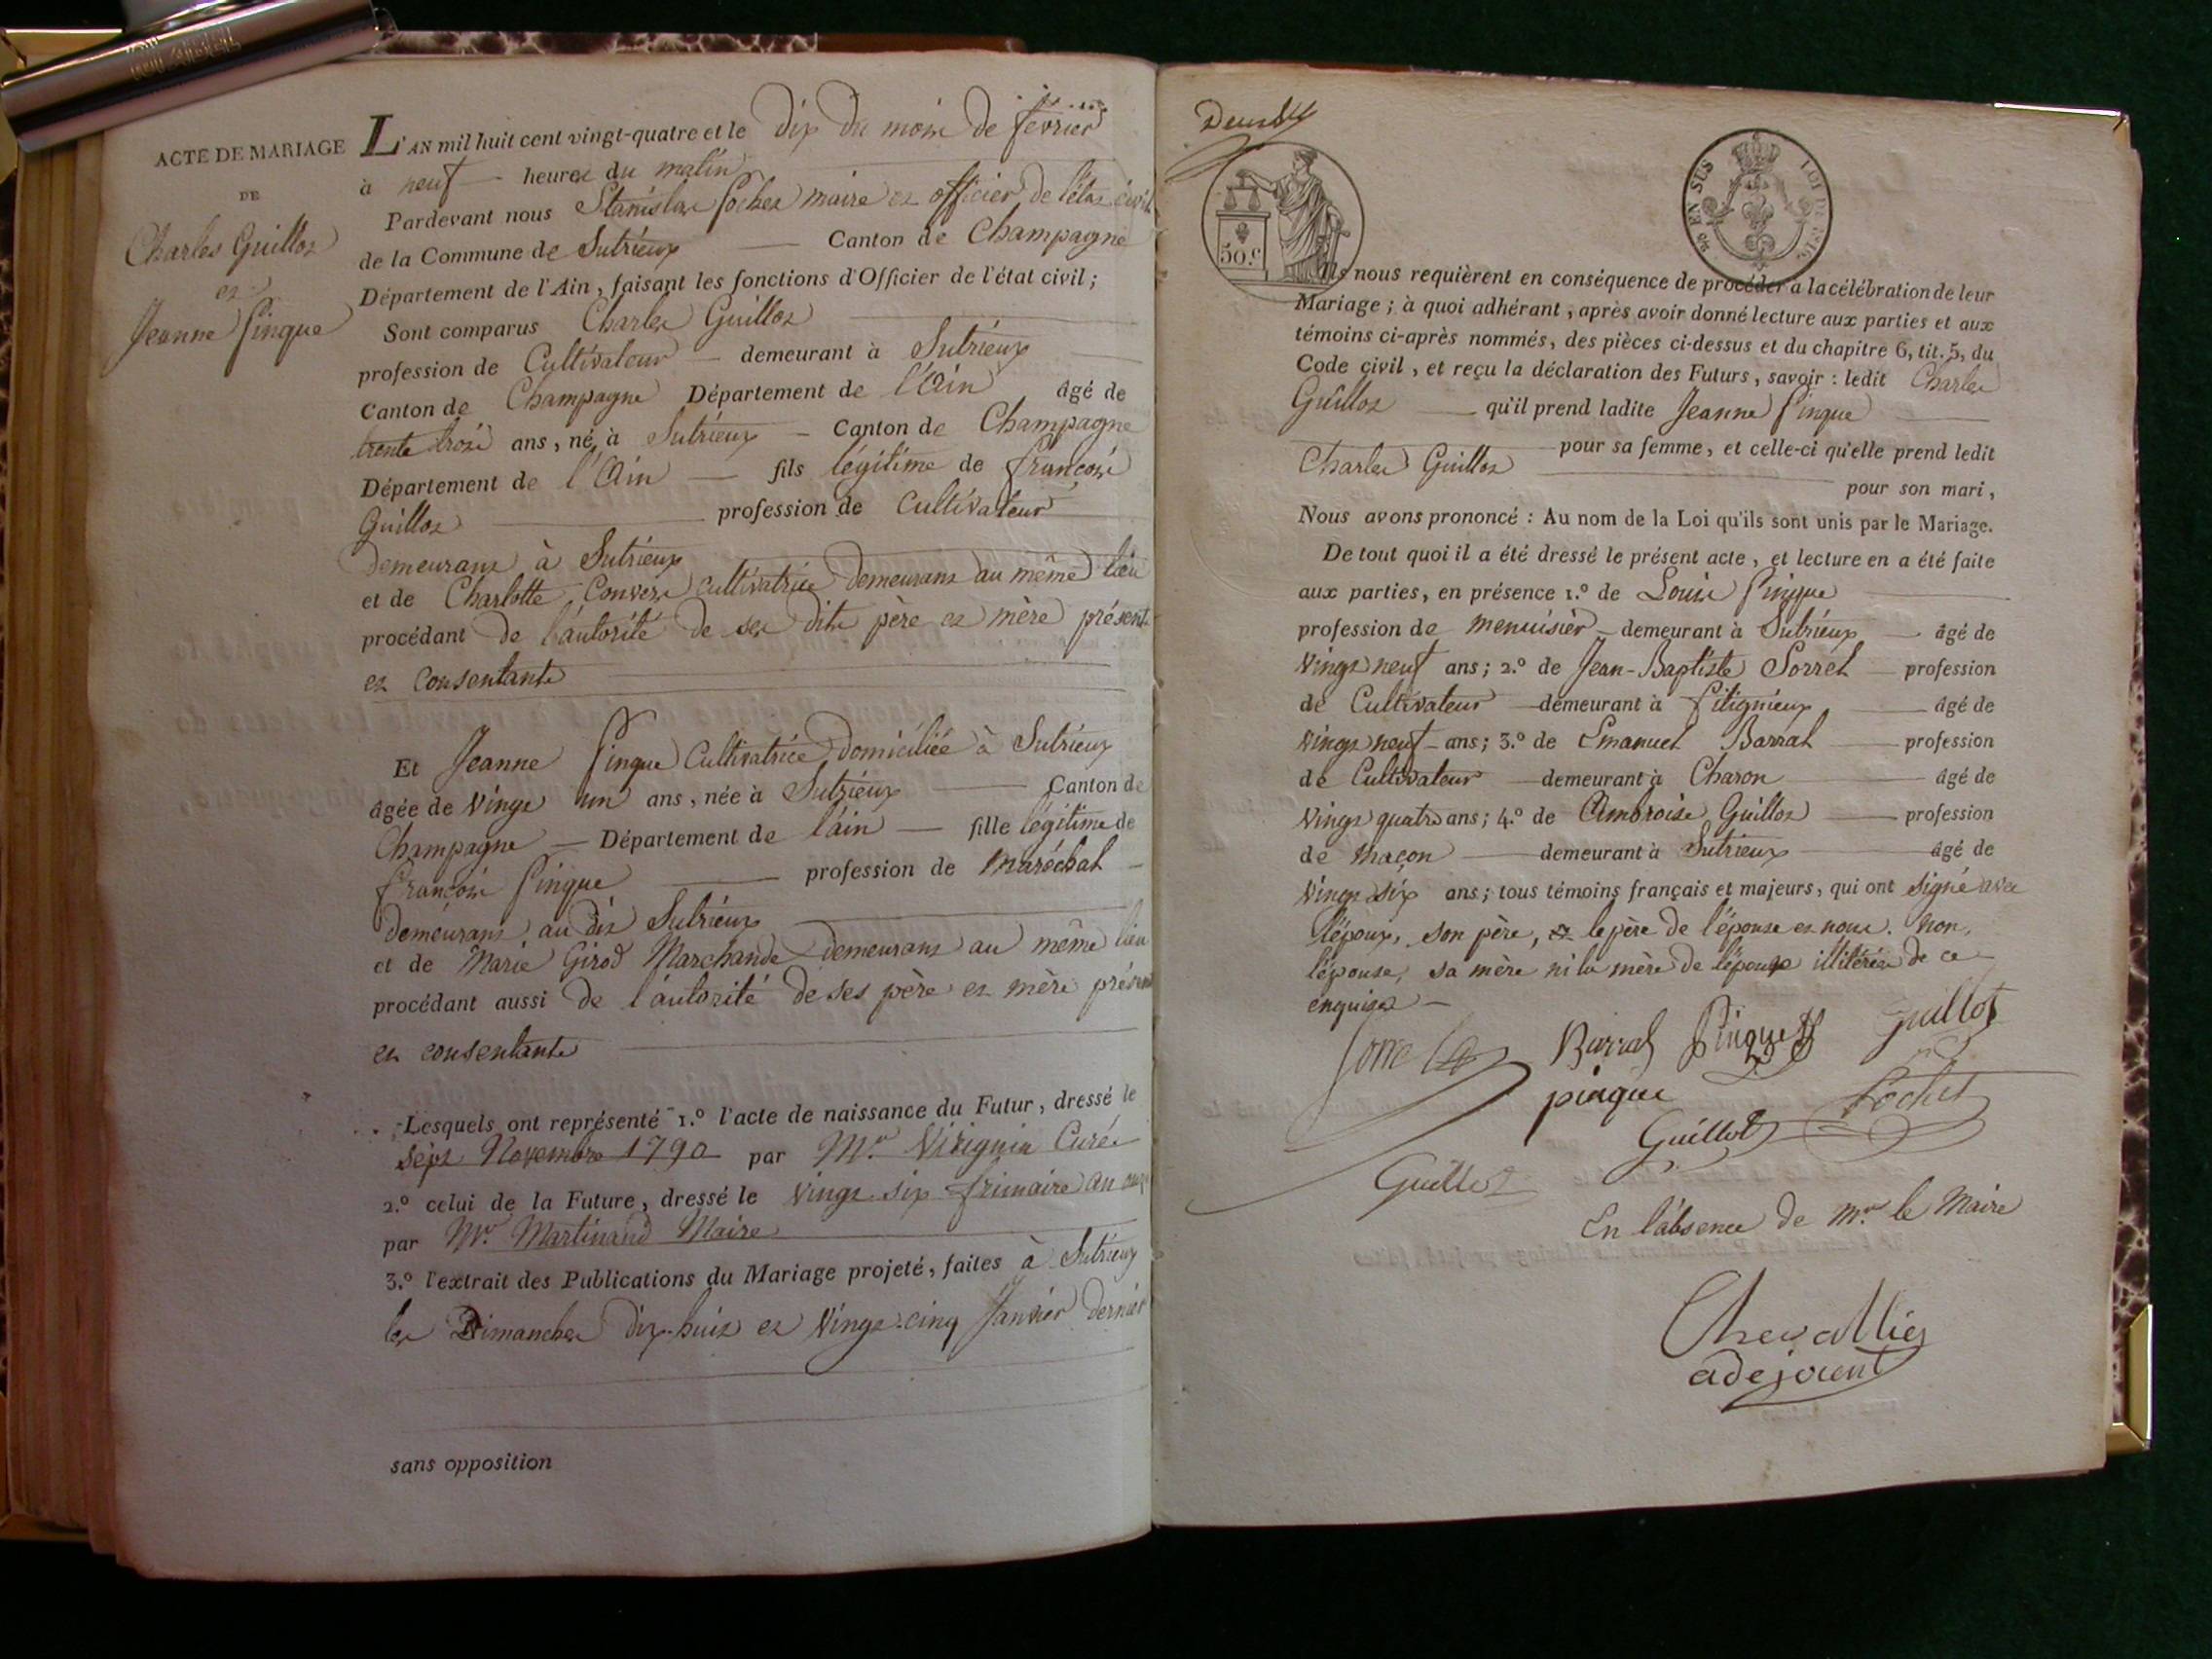 ACTE DE MARIAGE
DE
Charles Guillot
et
Jeanne Pingue
L'AN mil huit cent vingt-quatre et le dix du mois de février
à neuf heures du matin
Pardevant nous Stanislas Pochet maire et officier de l'état civil
de la Commune de Sutrieux Canton de Champagne
Département de l'Ain, faisant les fonctions d'Officier de l'état civil;
Sont comparus Charles Guillot
profession de Cultivateur demeurant à Sutrieux
Canton de Champagne Département de l'Ain âgé de
trente trois ans, né à Sutrieux Canton de Champagne
Département de l'Ain fils légitime de françois
Guillot profession de Cultivateur
demeurant à Sutrieux
et de Charlotte Convers cultivatrice demeurant au même lieu
procédant de l'autorité de ses dits père et mère présent
et consentants
Et Jeanne Pingue Cultivatrice domiciliée à Sutrieux
âgée de vingt un ans, née à Sutrieux Canton de
Champagne Département de l'ain fille légitime de
françois Pingue profession de Maréchal
demeurant au dit Sutrieux
et de Marie Girod Marchande demeurant au même lieu
procédant aussi de l'autorité de ses père et mère présent
et consentants
Lesquels ont représenté 1.º l'acte de naissance du Futur, dressé le
sept Novembre 1790 par Mr. Virignin Curé
2.º celui de la Future, dressé le vingt six frimaire an onze
par Mr. Martinand Maire
3.º l'extrait des Publications du Mariage projeté, faites à Sutrieux
les Dimanches dix-huit et vingt-cinq Janvier dernier
sans opposition
50.c
EN SUS
LOI DE 1816
Ils nous requièrent en conséquence de procéder à la célébration de leur
Mariage; à quoi adhérant, après avoir donné lecture aux parties et aux
témoins ci-après nommés, des pièces ci-dessus et du chapitre 6, tit. 5, du
Code civil, et reçu la déclaration des Futurs, savoir: ledit Charles
Guillot qu'il prend ladite Jeanne Pingue
pour sa femme, et celle-ci qu'elle prend ledit
Charles Guillot
pour son mari,
Nous avons prononcé: Au nom de la Loi qu'ils sont unis par le Mariage.
De tout quoi il a été dressé le présent acte, et lecture en a été faite
aux parties, en présence 1.º de Louis Pingue
profession de menuisier demeurant à Sutrieux âgé de
vingt neuf ans; 2.º de Jean-Baptiste Sorrel profession
de Cultivateur demeurant à Fitignieux âgé de
vingt neuf ans; 3.º de Emanuel Barral profession
de Cultivateur demeurant à Charon âgé de
vingt quatre ans; 4.º de Ambroise Guillot profession
de Maçon demeurant à Sutrieux âgé de
vingt six ans; tous témoins français et majeurs, qui ont signé avec
l'époux, son père, le père de l'épouse et nous. non
l'épouse, sa mère ni la mère de l'époux illitérées de ce
enquises
Sorrel Barral Pingue Guillot
pingue Pochet
Guillot
Guillot
En l'absence de Mr. le Maire
Chevallier
adejoient